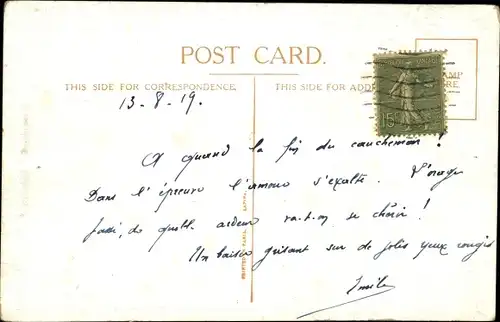 POST CARD.
THIS SIDE FOR CORRESPONDENCE.
THIS SIDE FOR ADDR
13-8-19.
15
A quand la fin du cauchemar !
Dans l'épreuve l'amour s'exalte.
de quelle ardeur va-t-on se chérir !
Un baiser grisant sur de jolis yeux rougis
Emile